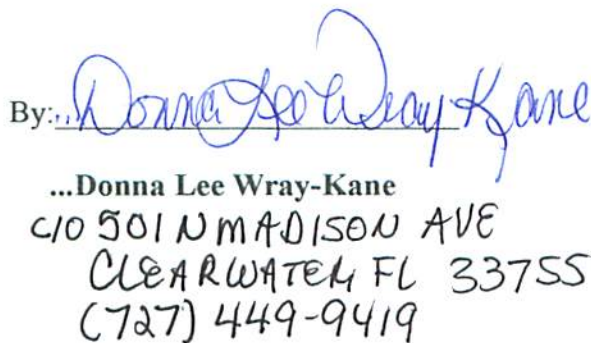 By:..Donna Lee Wray-Kane
...Donna Lee Wray-Kane
c/o 501 N MADISON AVE
CLEARWATER, FL 33755
(727) 449-9419